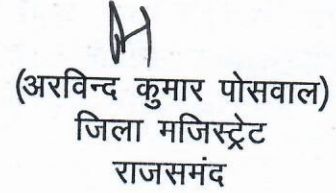 (अरविन्द कुमार पोसवाल)
जिला मजिस्ट्रेट
राजसमंद